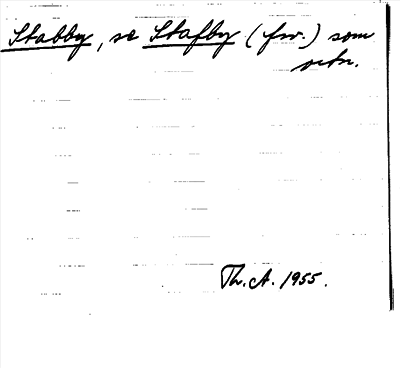 Stabby, se Stafby (fw.) som
ortn.
Th. A. 1955.